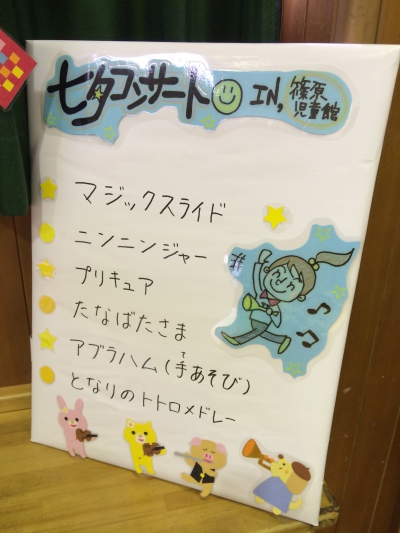 七夕コンサート IN,
篠原
児童館
マジックスライド
ニンニンジャー
プリキュア
たなばたさま
アブラハム(手あそび)
て
となりのトトロメドレー